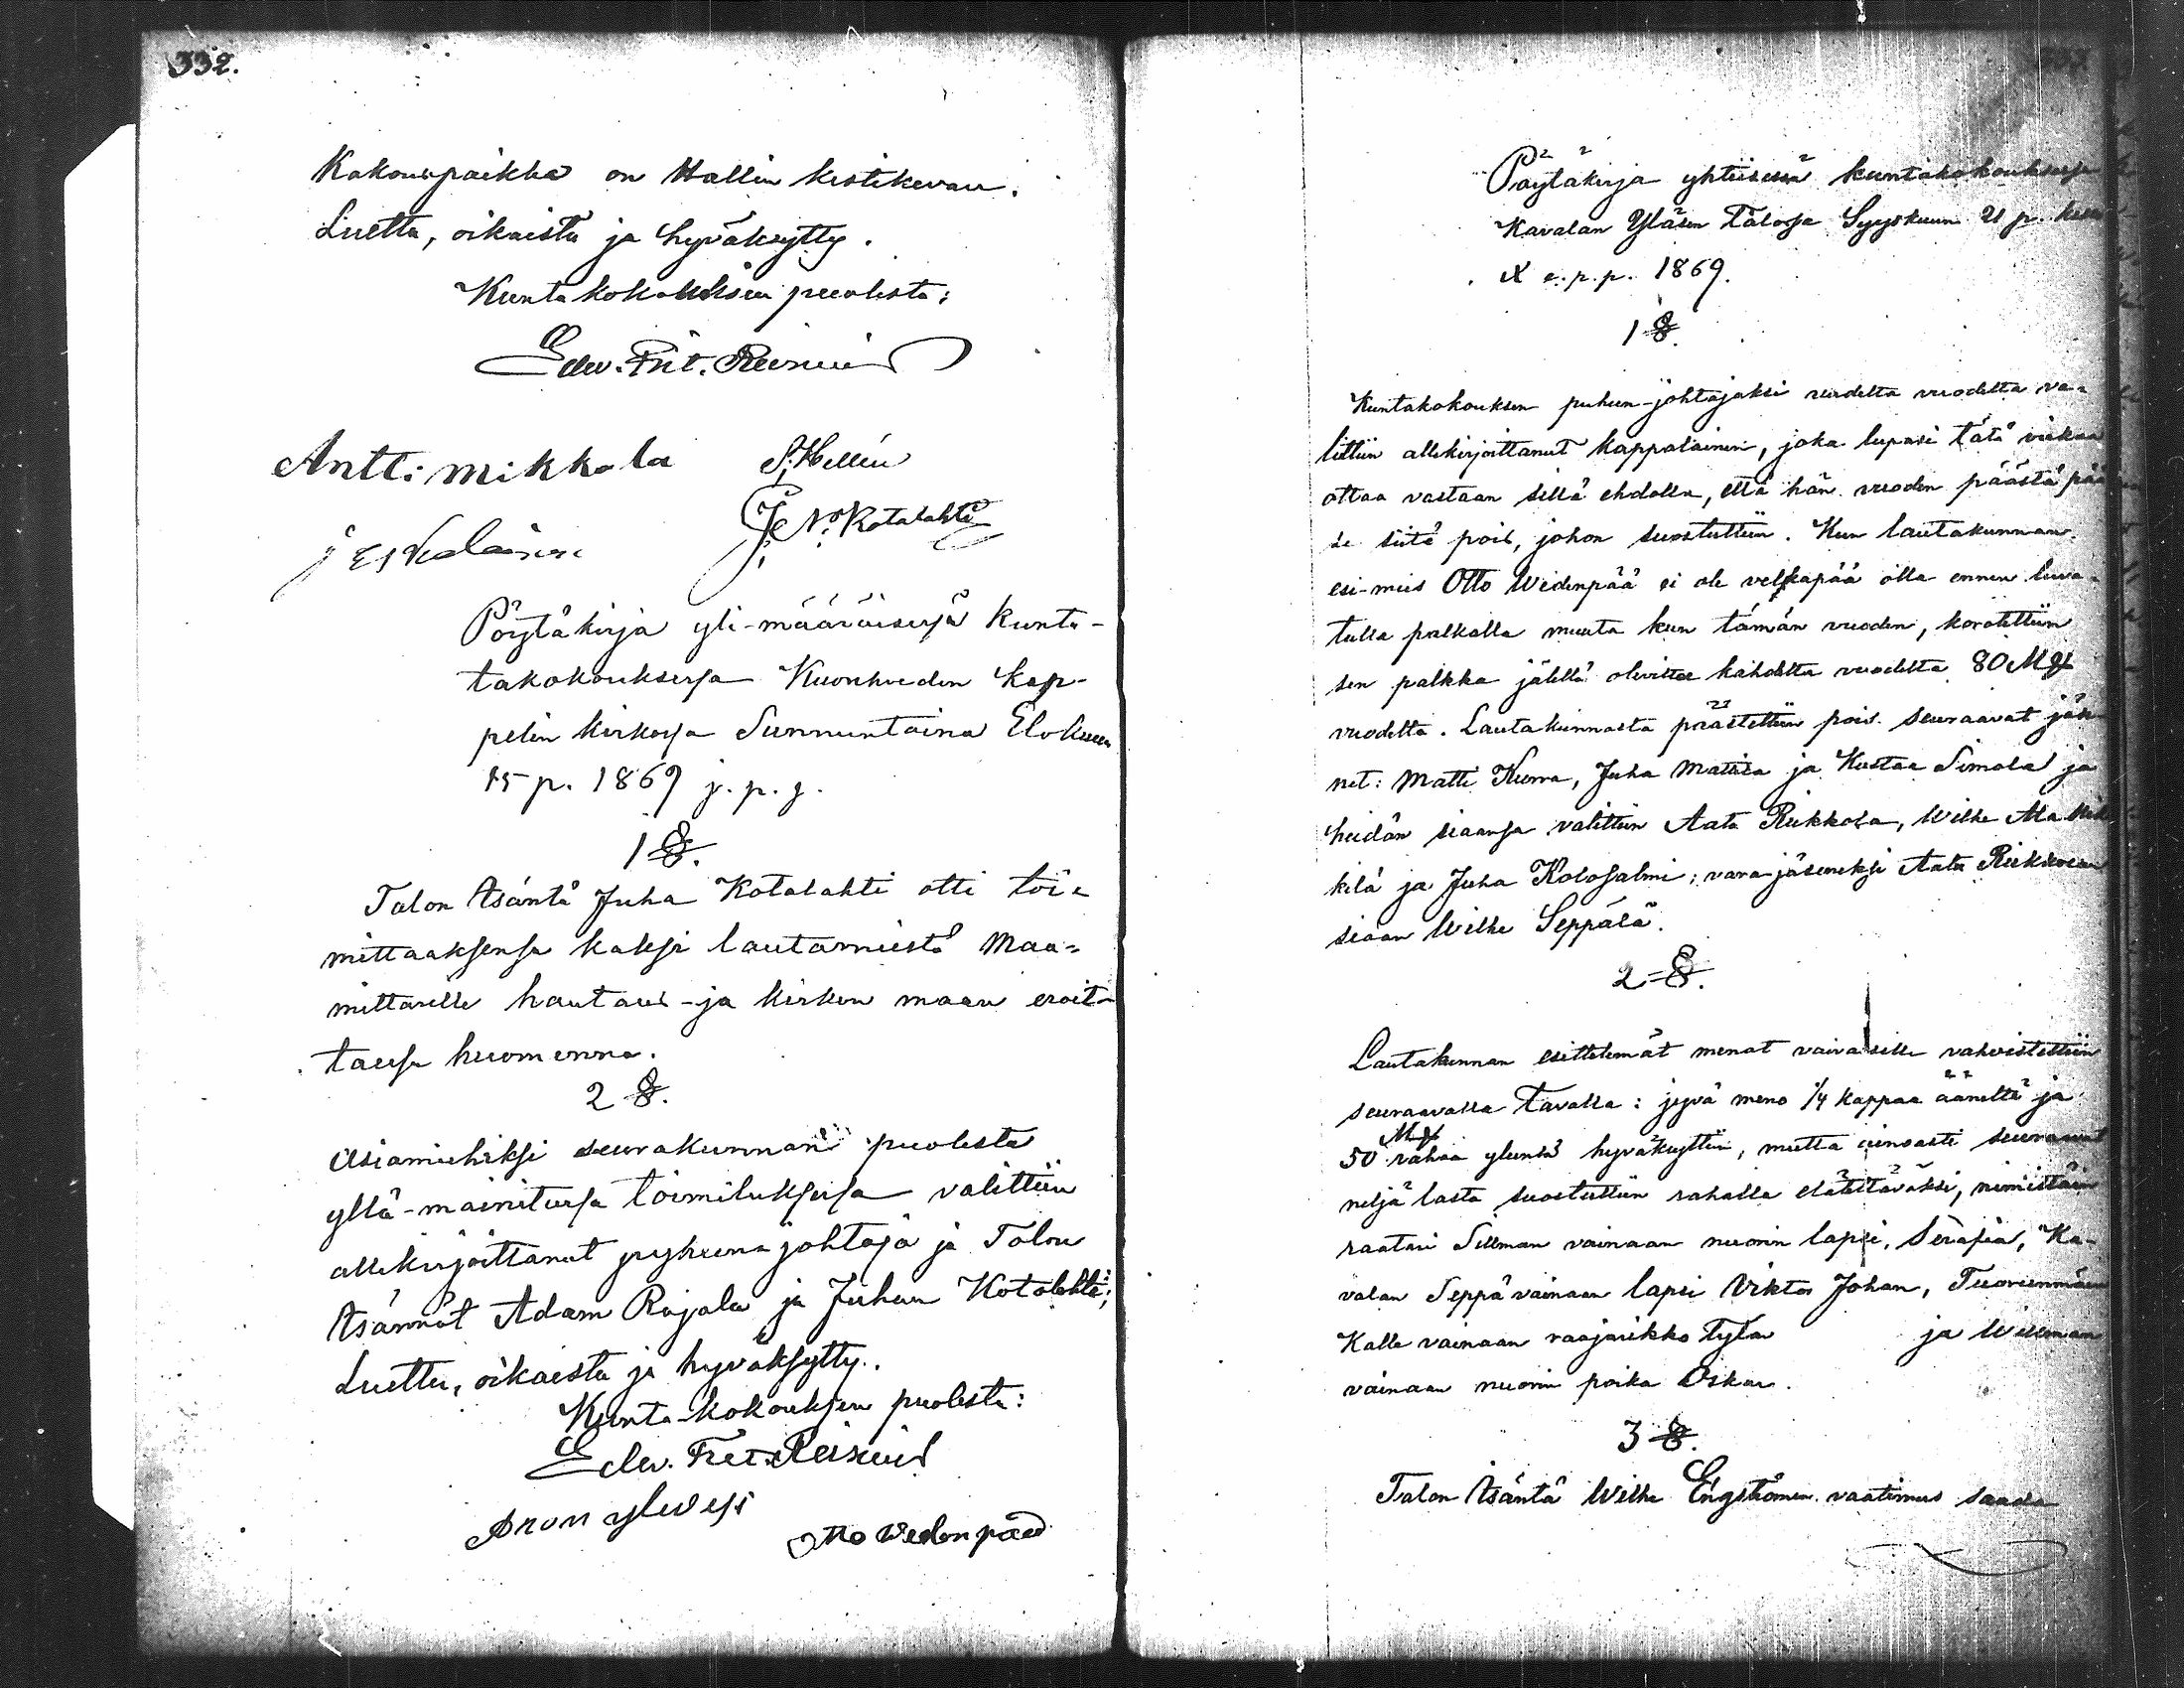 332.
Kokouspaikka on Hallin kestikevari.
Luettu, oikaistu ja hyväksytty.
Kuntakokouksen puolesta:
Edw. Frit. Reinius
Antti mikkola S. Hellén
J Eskolainen J. N. Kotalahti
Pöytäkirja yli-määräisessä kunta-
takokouksessa Kuorehveden Kap-
pelin kirkossa Sunnuntaina Elokuun
15 p. 1869 j. p. j.
1 §.
Talon Isäntä Juha Kotalahti otti toi-
mittaaksensa kaksi lautamiestä Maa-
mittarille hautaus-ja kirkon maan eroit-
taessa huomenna.
2 §.
Asiamiehiksi seurakunnan puolesta
yllä-mainitussa toimituksessa valittiin
allekirjoittanut puheenjohtaja ja Talon
Isännät Adam Rajala ja Juhan Kotalahti;
Luettu, oikaistu ja hyväksytty.
Kunta-kokouksen puolesta:
Edw. Frit. Reinius
Aron ylwesi
Otto wedenpää
Pöytäkirja yhteisessä kuntakokouksessa
Kavalan Yläsen Talossa Syyskuun 21 p. kello
X e.p.p. 1869.
1 §.
Kuntakokouksen puheen-johtajaksi vuodelta va-
littiin allekirjoittanut kappalainen, joka lupasi tätä virkaa
ottaa vastaan sillä ehdolla, että hän vuoden päästä pää-
se siitä pois, johon suostuttiin. Kun lautakunnan
esi-mies Otto Widenpää ei ole velkapää olla ennen luva-
tulla palkalla muuta kun tämän vuoden, korotettiin
sen palkka jälellä olevilta kahdelta vuodelta 80 Mk
vuodelta. Lautakunnasta päästettiin pois seuraavat jäse-
net: Matti Kurra, Juha Mattila ja Kustaa Simola ja
heidän siaansa valittiin Aata Riekkola, Wilhe
kilä ja Juha Kolosalmi; vara-jäseneksi Aata Riekkolan
siaan Wilhe Seppälä.
2 §.
Lautakunnan esittelemät menot vaivasille vahvistettiin
seuraavalla tavalla: jyvä meno 1/4 kappaa ääneltä ja
50 Mk rahaa yleensä hyväksyttiin, mutta ainoasti seuraavat
neljä lasta suostuttiin rahalla elätettäväksi, nimittäin
raatari Sillman vainaan nuorin lapsi, Serafia, Ka-
valan Seppä vainaan lapsi Viktor Johan, Tuorienmäen
Kalle vainaan raajarikko tytär ja Willman
vainaan nuorin poika Oskar.
3 §.
Talon Isäntä Wilhe Engströmin vaatimus saada